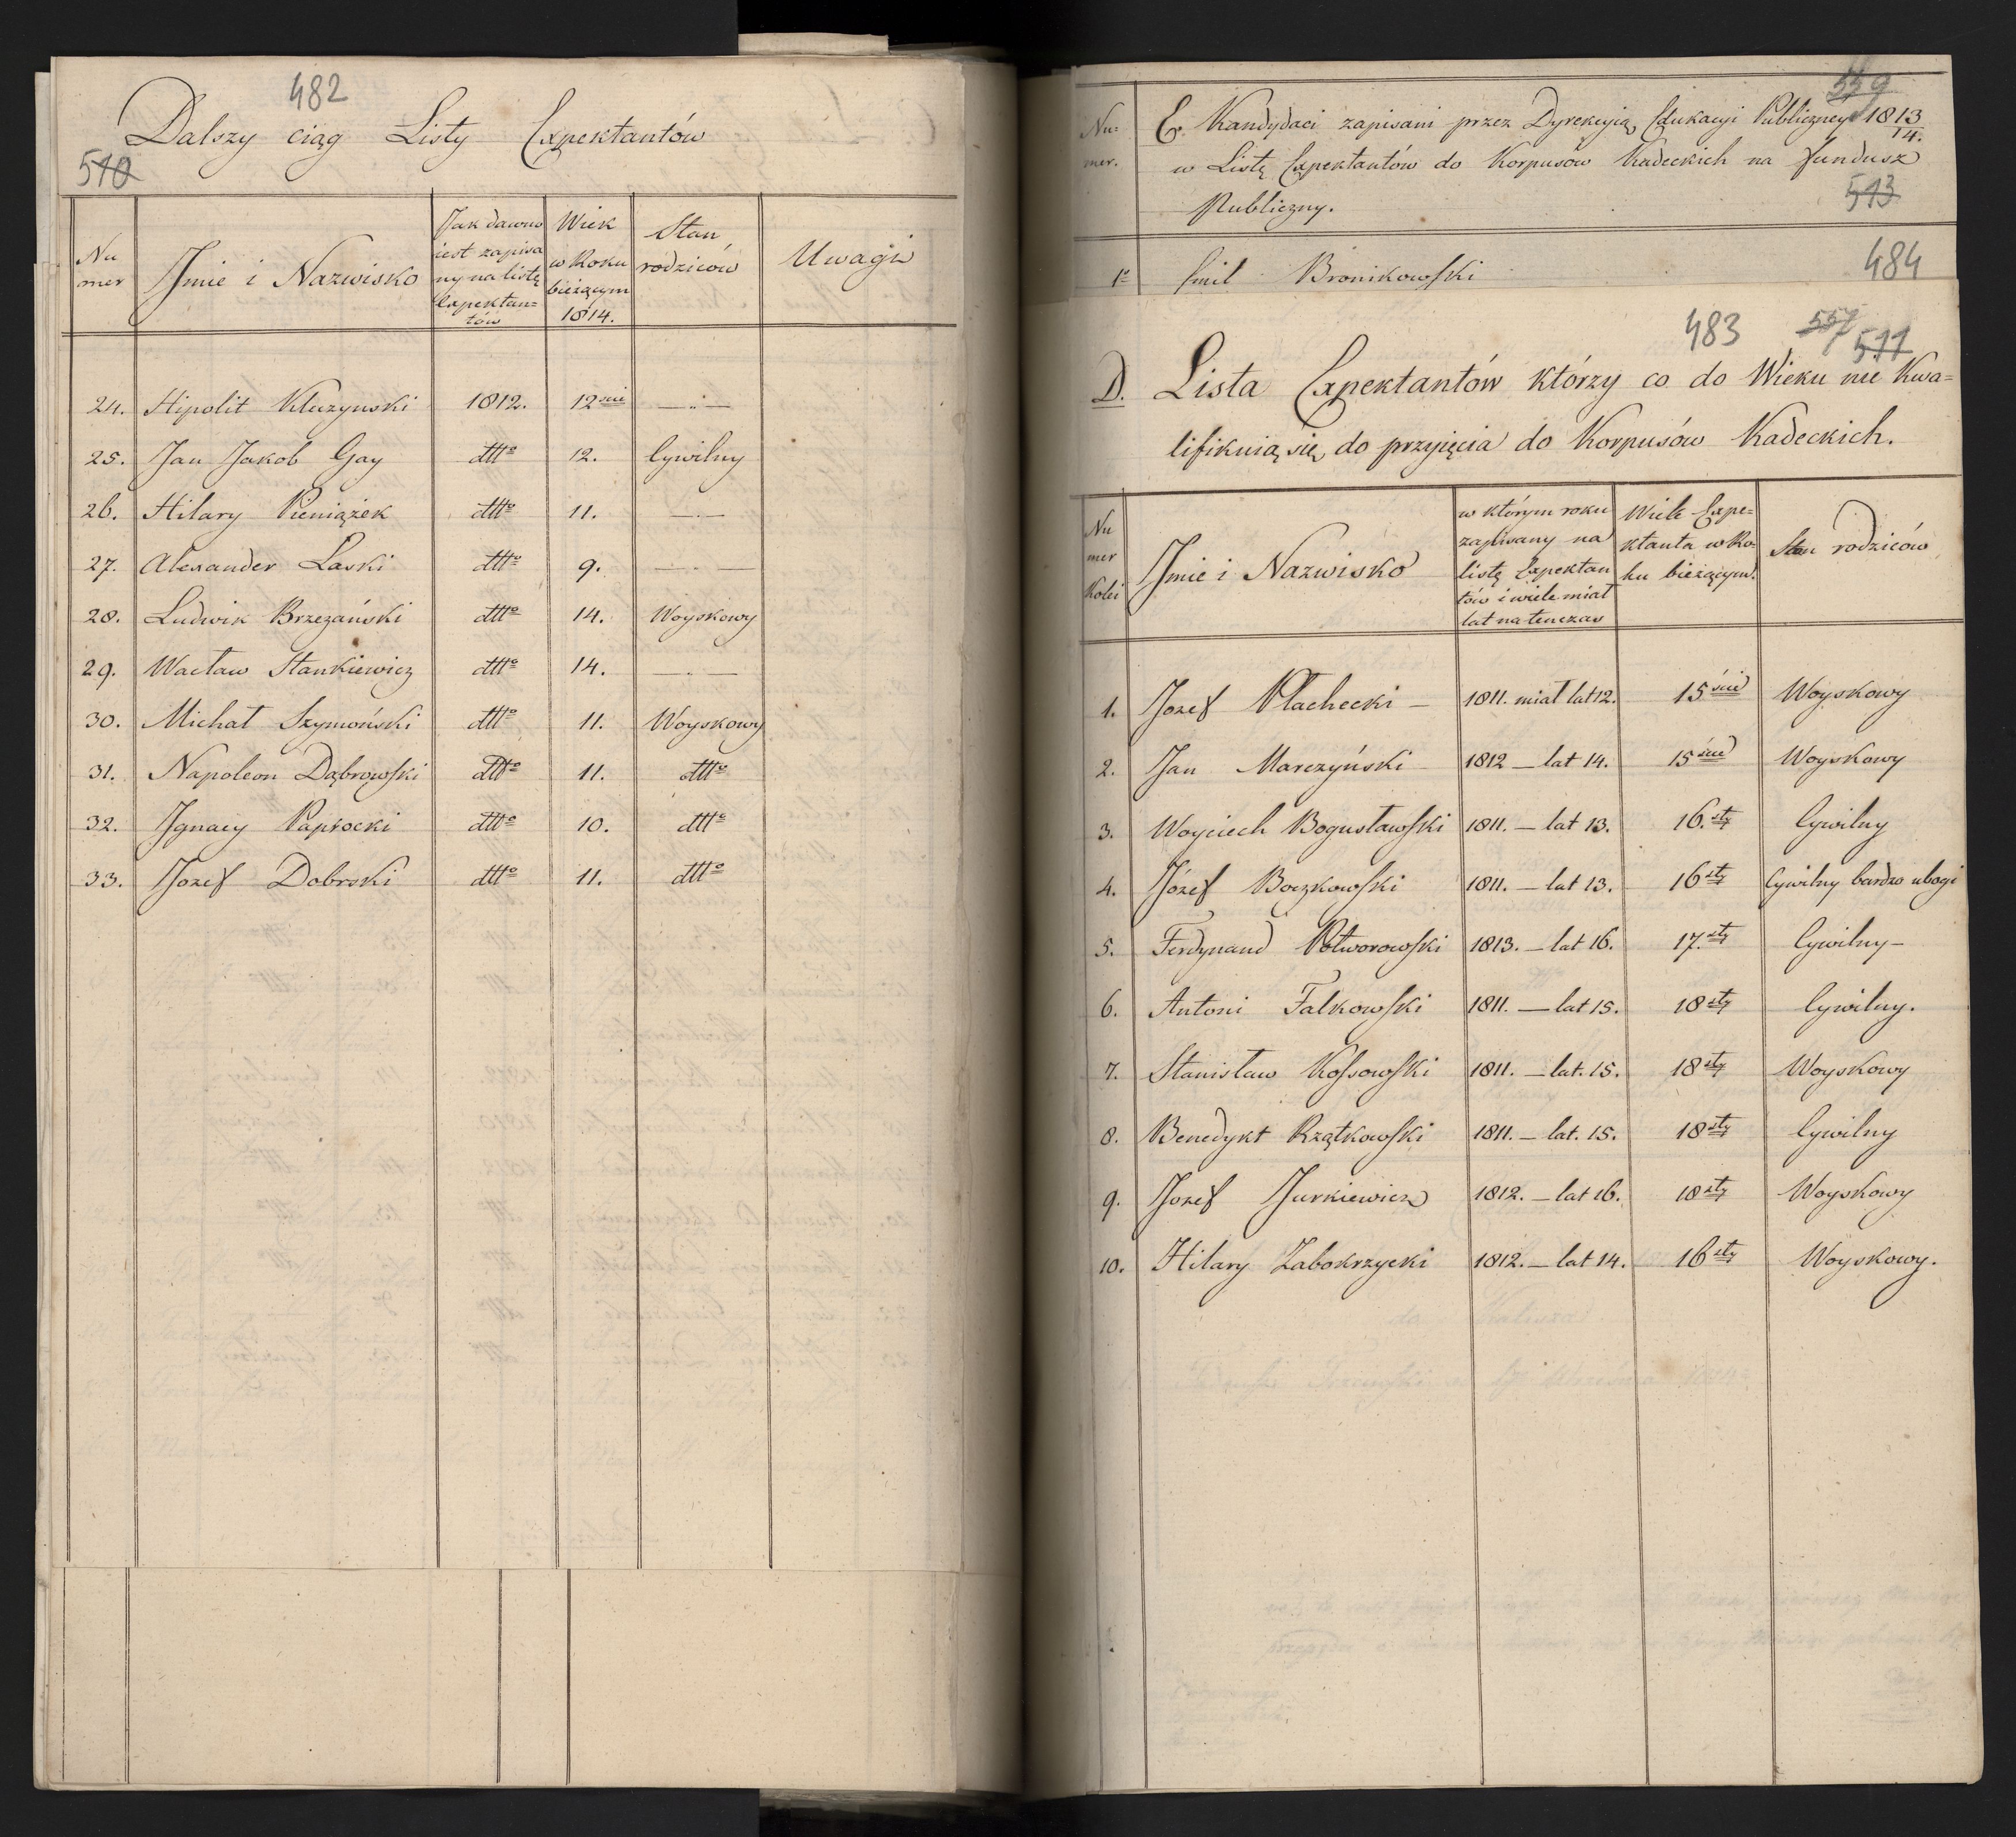 482
Dalszy ciąg Listy Expektantów
510
Nu
mer
Jmie i Nazwisko
Jak dawno
iest zapisa
ny na listę
Expektan=
tów
Wiek
w Roku
bieżącym
1814.
Stan
rodziców
Uwagi
24. Hipolit Kluzynski 1812. 12 — „ —
25. Jan Jakob Gay dtto 12. Cywilny
26. Hilary Pieniążek dtto 11. — . —
27. Alexander Laski dtto 9. — . —
28. Ludwik Brzezański dtto 14. Woyskowy
29. Wacław Stankiewicz dtto 14. — . —
30. Michał Szymoński dtto 11. Woyskowy
31. Napoleon Dąbrowski dtto 11. dtto
32. Jgnacy Paprocki dtto 10. dtto
33. Jozef Dobrski dtto 11. dtto
559
Nu=
mer.
E. Kandydaci zapisani przez Dyrekcyią Edukacyi Publiczney 1813/14.
w Listę Expektantów do Korpusów Kadeckich na Fundusz
Publiczny.
513
484
1º Emil Bronikowski
483 557
511
D. Lista Expektantów którzy co do Wieku nie Kwa=
lifikuią się do przyięcia do Korpusów Kadeckich.
Nu
mer
Kolei
Jmie i Nazwisko
w którym roku
zapisany na
listę Expektan
tów i wiele miał
lat na tenczas
Wiek Expe=
ktanta w Ro=
ku bieżącym.
Stan rodziców
1. Jozef Płachecki — 1811. miał lat 12. 15ście Woyskowy
2. Jan Marczyński — 1812 — lat 14. 15ście Woyskowy
3. Woyciech Bogusławski 1811. — lat 13. 16.sty Cywilny
4. Józef Boczkowski 1811. — lat 13. 16sty Cywilny bardzo ubogi
5. Ferdynand Potworowski 1813. — lat 16. 17.sty Cywilny —
6. Antoni Falkowski 1811. — lat 15. 18sty Cywilny.
7. Stanisław Kossowski 1811. — lat. 15. 18sty Woyskowy
8. Benedykt Rzątkowski 1811. — lat. 15. 18sty Cywilny
9. Jozef Jurkiewicz 1812. — lat 16. 18sty Woyskowy
10. Hilary Zabokrzycki 1812. — lat 14. 16sty Woyskowy.